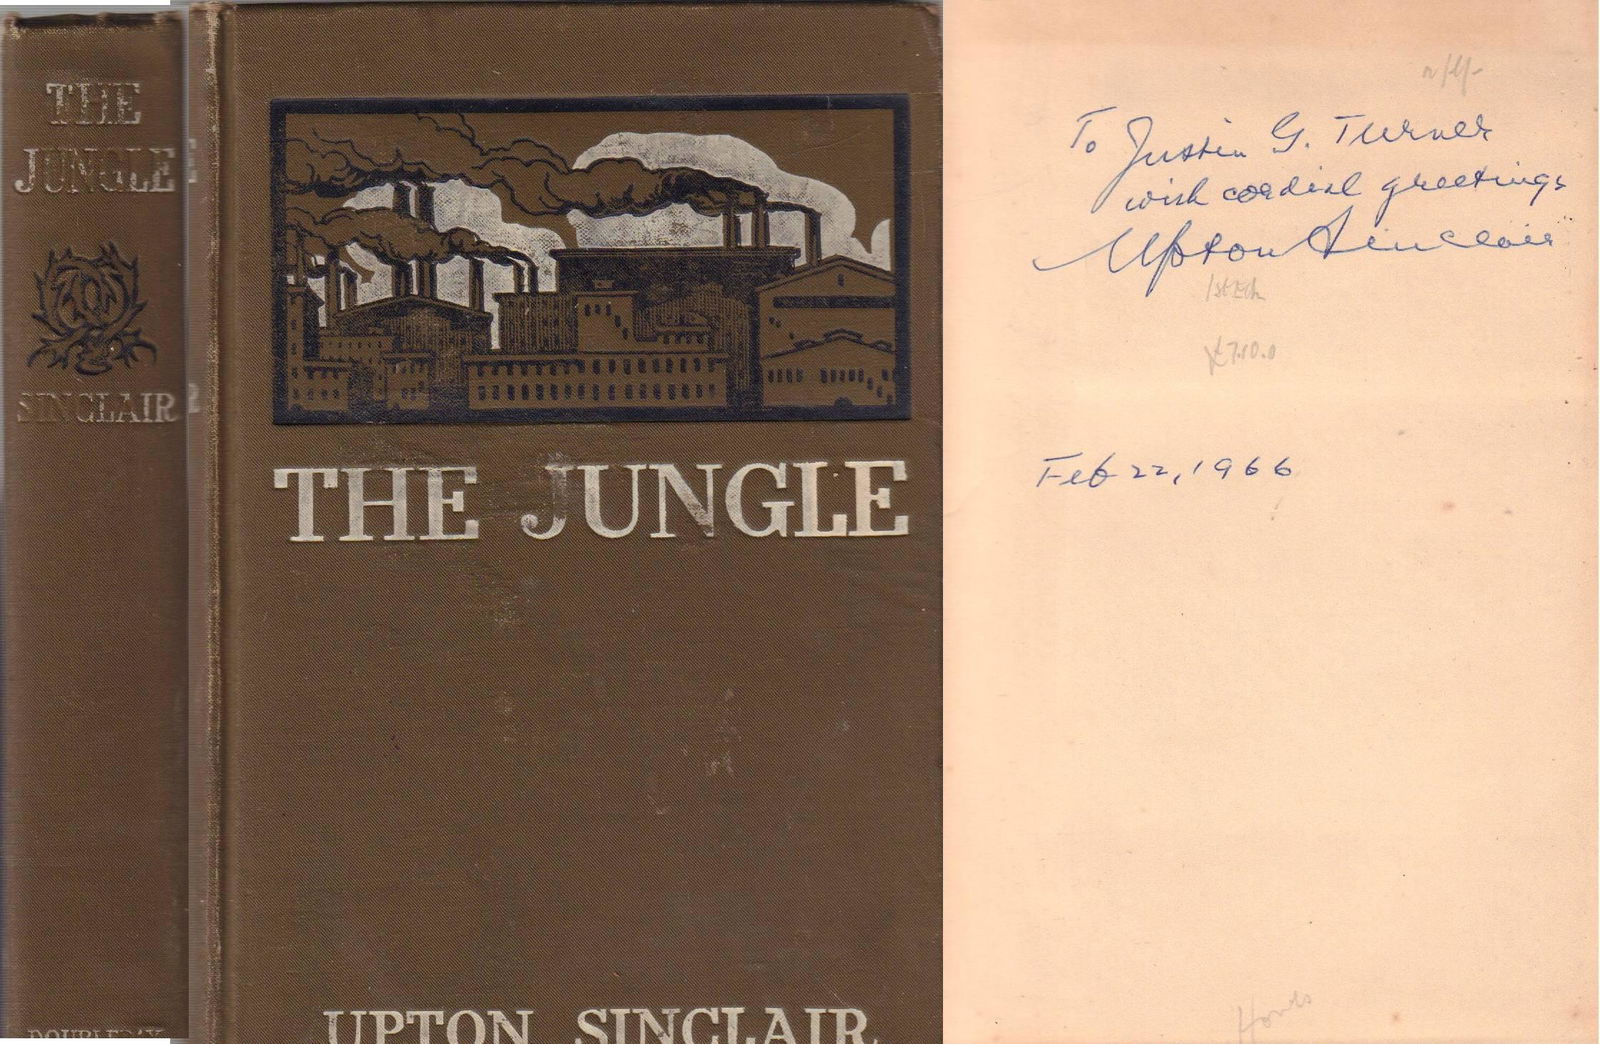 THE
JUNGLE
SINCLAIR
DOUBLEDAY
THE JUNGLE
UPTON SINCLAIR
To Justin G. Turner
with cordial greetings
Upton Sinclair
1st Edn
£7.10.0
Feb 22, 1966